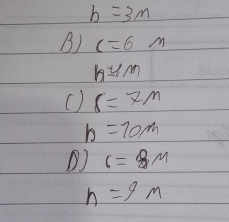 h = 3 m
B) c = 6 m
h = 4 m
C) c = 7 m
h = 10 m
D) c = 8 m
h = 9 m